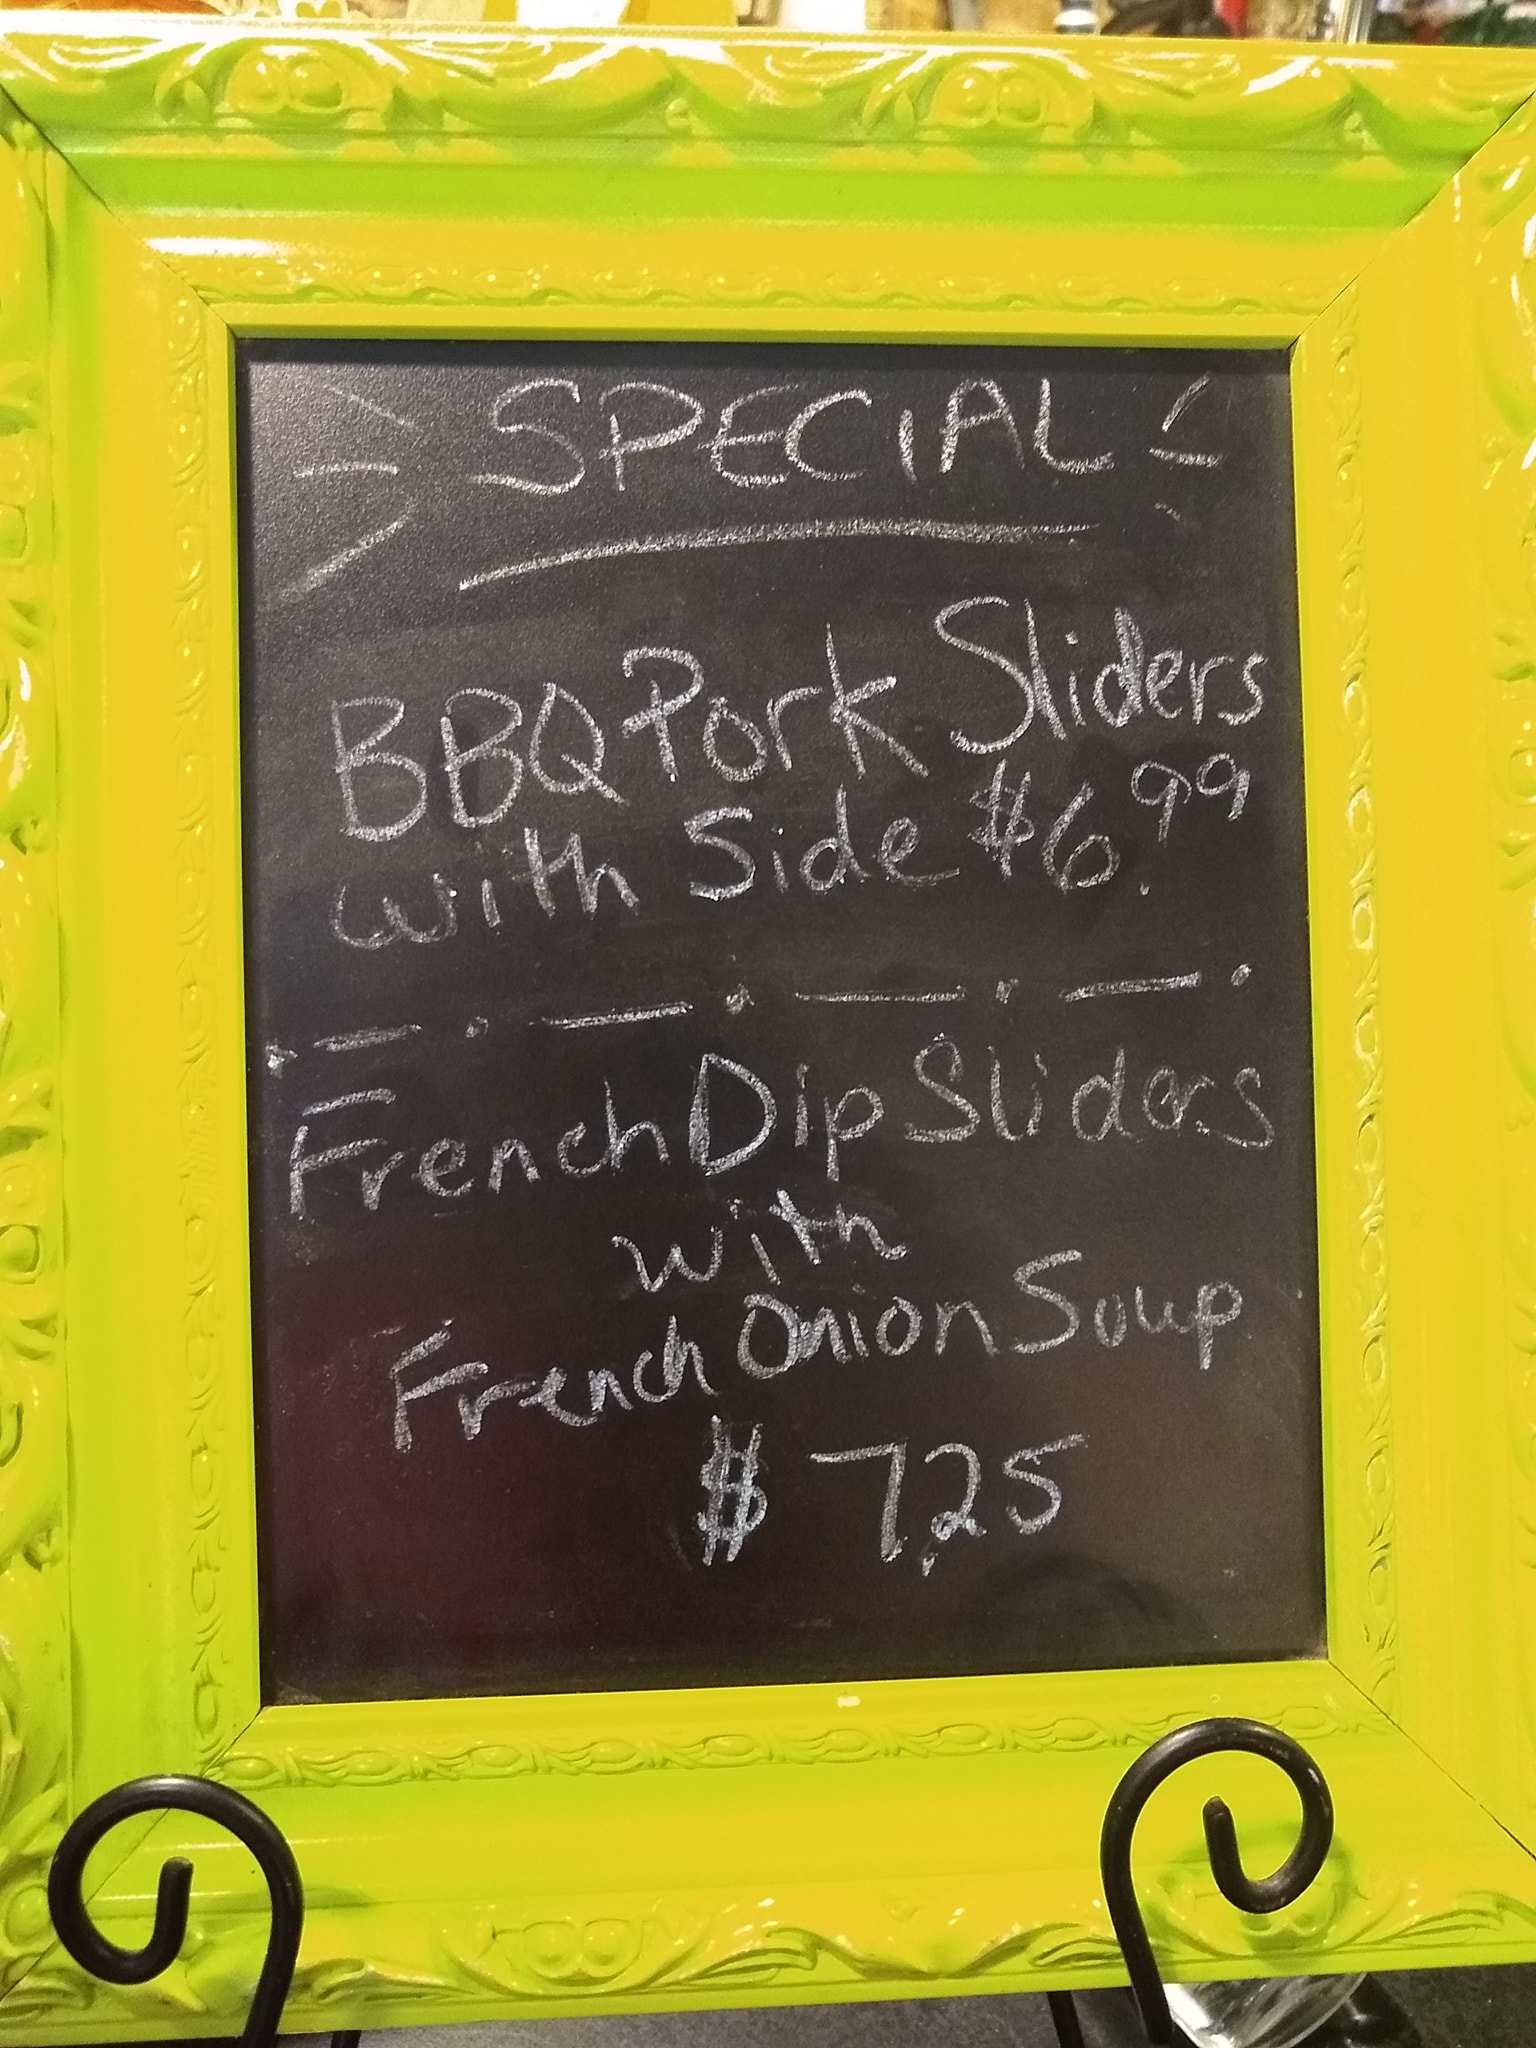 SPECIAL
BBQ Pork Sliders
with Side $6.99
French Dip Sliders
with
French Onion Soup
$ 7.25